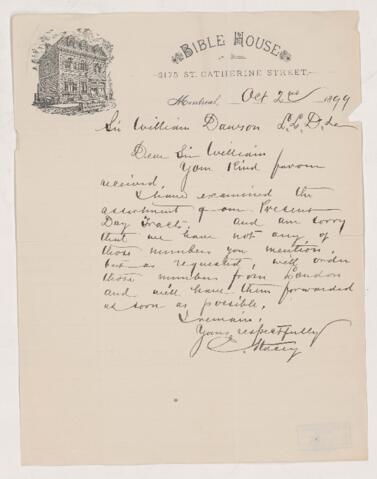 BIBLE HOUSE
2175 ST. CATHERINE STREET.
Montreal, Oct 2nd 1899
Sir William Dawson L.L.D. &c
Dear Sir William/
Your Kind favour
received.
I have examined the
assortment of our Present
Day Tracts, and am sorry
that we have not any of
those numbers you mention,
but as requested, will order
those numbers from London
and will have them forwarded
as soon as possible,
I remain,
Yours respectfully
Stacey